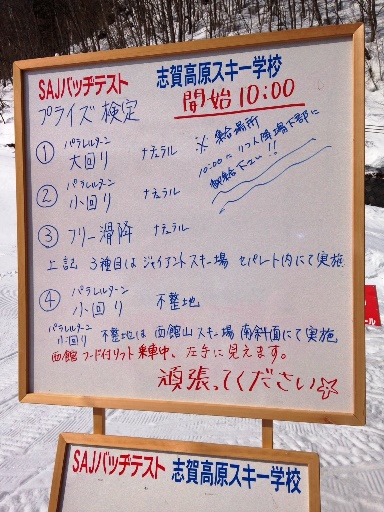 SAJバッヂテスト 志賀高原スキー学校
プライズ検定 開始10:00
① パラレルターン 大回り ナチュラル
※ 集合場所
10:00に リフト降場下部に
御集合下さい!!
② パラレルターン 小回り ナチュラル
③ フリー滑降 ナチュラル
上記 3種目は ジャイアントスキー場 セパレート内にて実施
④ パラレルターン 小回り 不整地
パラレルターン 小回り 不整地は 西館山スキー場 南斜面にて実施
西館 フード付リフト乗車中、左手に見えます。
頑張ってください☆
SAJバッヂテスト 志賀高原スキー学校